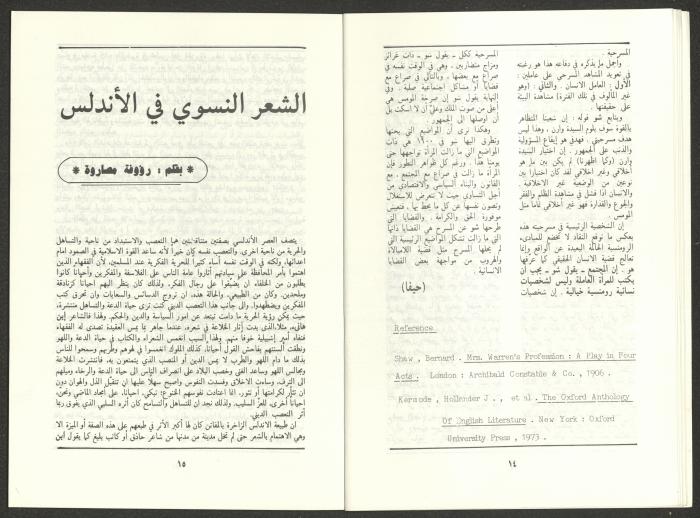 المسرحية .
وأجمل ما يذكره في دفاعه هذا هو رغبته
في تعويد المشاهد المسرحي على عاملين :
الأول : العامل الانساني . والثاني : (وهو
غير المألوف في تلك الفترة) مشاهدة البيئة
على حقيقتها .
ويتابع شو قوله : إن شعبنا المتظاهر
بالقوة سوف يلوم السيدة وارن ، وهذا ليس
هدف مسرحيتي . فهدفي هو إيقاع المسؤولية
والذنب على الجمهور . إن اختيار السيدة
وارن (وكما اظهرنا) لم يكن بين ما هو
أخلاقي وغير اخلاقي لقد كان اختيارا بين
نوعين من الوضعيه غير الاخلاقية .
والانسان اذا فشل في مشاهدة الظلم والفقر
والجوع والقذارة فهو غير أخلاقي تماماً مثل
المومس .
إن الشخصية الرئيسية في مسرحيته هذه
بعكس ما توقعه النقاد لا تخضع للمبادىء
الرومنسية الحالمة البعيدة عن الواقع وإنما
تعالج قضية الانسان الحقيقي كما عرفها
هو . إن المجتمع ـ يقول شو ـ يجب أن
يكتب للمرأة العاملة وليس لشخصيات
نسائية رومنسية خيالية . إن شخصيات
المسرحية ككل ـ يقول شو ـ ذات غرائز
ومزاج متضاربين ، وهي في الوقت نفسه في
صراع مع بعضها ، وبالتالي في صراع مع
قضايا أو مشاكل اجتماعية صلبة . وفي
النهاية يقول شو إن صرخة المومس هي
أعلى من صوت الملك وعليّ أن لا اسكت بل
أن اوصلها الى الجمهور .
وهكذا نرى أن المواضيع التي يعنها
وتطرق اليها شو في ١٩٠٠ هي ذات
المواضيع التي ما زالت المرأة تواجهها حتى
يومنا هذا . ورغم كل ظواهر التطور فإن
المرأة ما زالت في صراع مع المجتمع ، مع
القانون والبناء السياسي والاقتصادي من
أجل التساوي حيث لا تتعرض للإستغلال
وتصون نفسها عن كل ما يحط بها ، فتعيش
موفورة الحق والكرامة . والقضايا التي
طرحها شو عن المسرح هي القضايا ذاتها
التي ما زالت تشكل المواضيع الرئيسية التي
لم يخلها المسرح مثل قضية اللامبالاة
والهروب من مواجهة بعض القضايا
الانسانية .
(حيفا)
Reference
Shaw , Bernard . Mrs. Warren's Profession : A Play in Four
Acts . London : Archibald Constable & Co , 1906 .
Kermode , Hollender J . , et al . The Oxford Anthology
Of English Literature . New York : Oxford
University Press , 1973 .
١٤
الشعر النسوي في الأندلس
* بقلم : رؤوفة مصاروة *
يتصف العصر الأندلسي بصفتين متناقضتين هما التعصب والاستبداد من ناحية والتساهل
والحرية من ناحية أخرى. والتعصب نفسه كان خيراً لأنه ساعد القوة الاسلامية في الصمود امام
اعدائها، ولكنه في الوقت نفسه أساء كثيراً للحرية الفكرية عند المسلمين، لأن الفقهاء الذين
اهتموا بأمر المحافظة على سيادتهم أثاروا عامة الناس على الفلاسفة والمفكرين وأحيانا كانوا
يطلبون من الخلفاء ان يضيقوا على رجال الفكر، ولذلك كان ينظر اليهم احيانا كزنادقة
وملحدين. وكان من الطبيعي، والحالة هذه، ان تروج الدسائس والسعايات وان تحرق كتب
المفكرين ويضطهدوا. والى جانب هذا التعصب الديني كنت ترى حياة الدعة والتساهل منتشرة،
حيث يمكن رؤية الحرية ما دامت تبتعد عن امور السياسة والدين والحكم. وهذا فالشاعر إبن
هانىء، مثلا،الذى بدت آثار الخلاعة في شعره، عندما جاهر بما يمس العقيدة تصدى له الفقهاء
فنفاه أمير إشبيلية خوفا منهم. ولهذا السبب انغمس الشعراء والكتّاب في حياة الدعة واللهو
ونطقت ألسنتهم بفاحش القول أحيانا، كذلك الملوك انغمسوا في لهوهم وطربهم وسمحوا للناس
بذلك ما دام اللهو والطرب لا يمس الدين أو المنصب الذي يتمتعون به. فانتشرت الخلاعة
ومجالس اللهو وساعد الغنى وخصب البلاد على انصراف الناس الى حياة الدعة والرخاء وميلهم
الى الترف، وساءت الاخلاق وفسدت النفوس واصبح سهلا عليها ان تتقبّل الذل والهوان دون
ان تثأر لكرامتها أو تثور، انما اعتادت نفوسهم الخنوع: تبكي، احيانا، على أمجاد الماضي وتحن،
أحيانا أخرى، للعزّ السليب. ولذلك نجد ان للتساهل والتسامح كان أثره السلبي الذي يفوق ربما
أثر التعصب الديني.
ان طبيعة الاندلس الزاخرة بالمفاتن كان لها أكبر الأثر في طبعهم على هذه الصفة أو الميزة ألا
وهي الاهتمام بالشعر حتى لم تخل مدينة من مدنها من شاعر حاذق أو كاتب بليغ كما يقول أبن
١٥